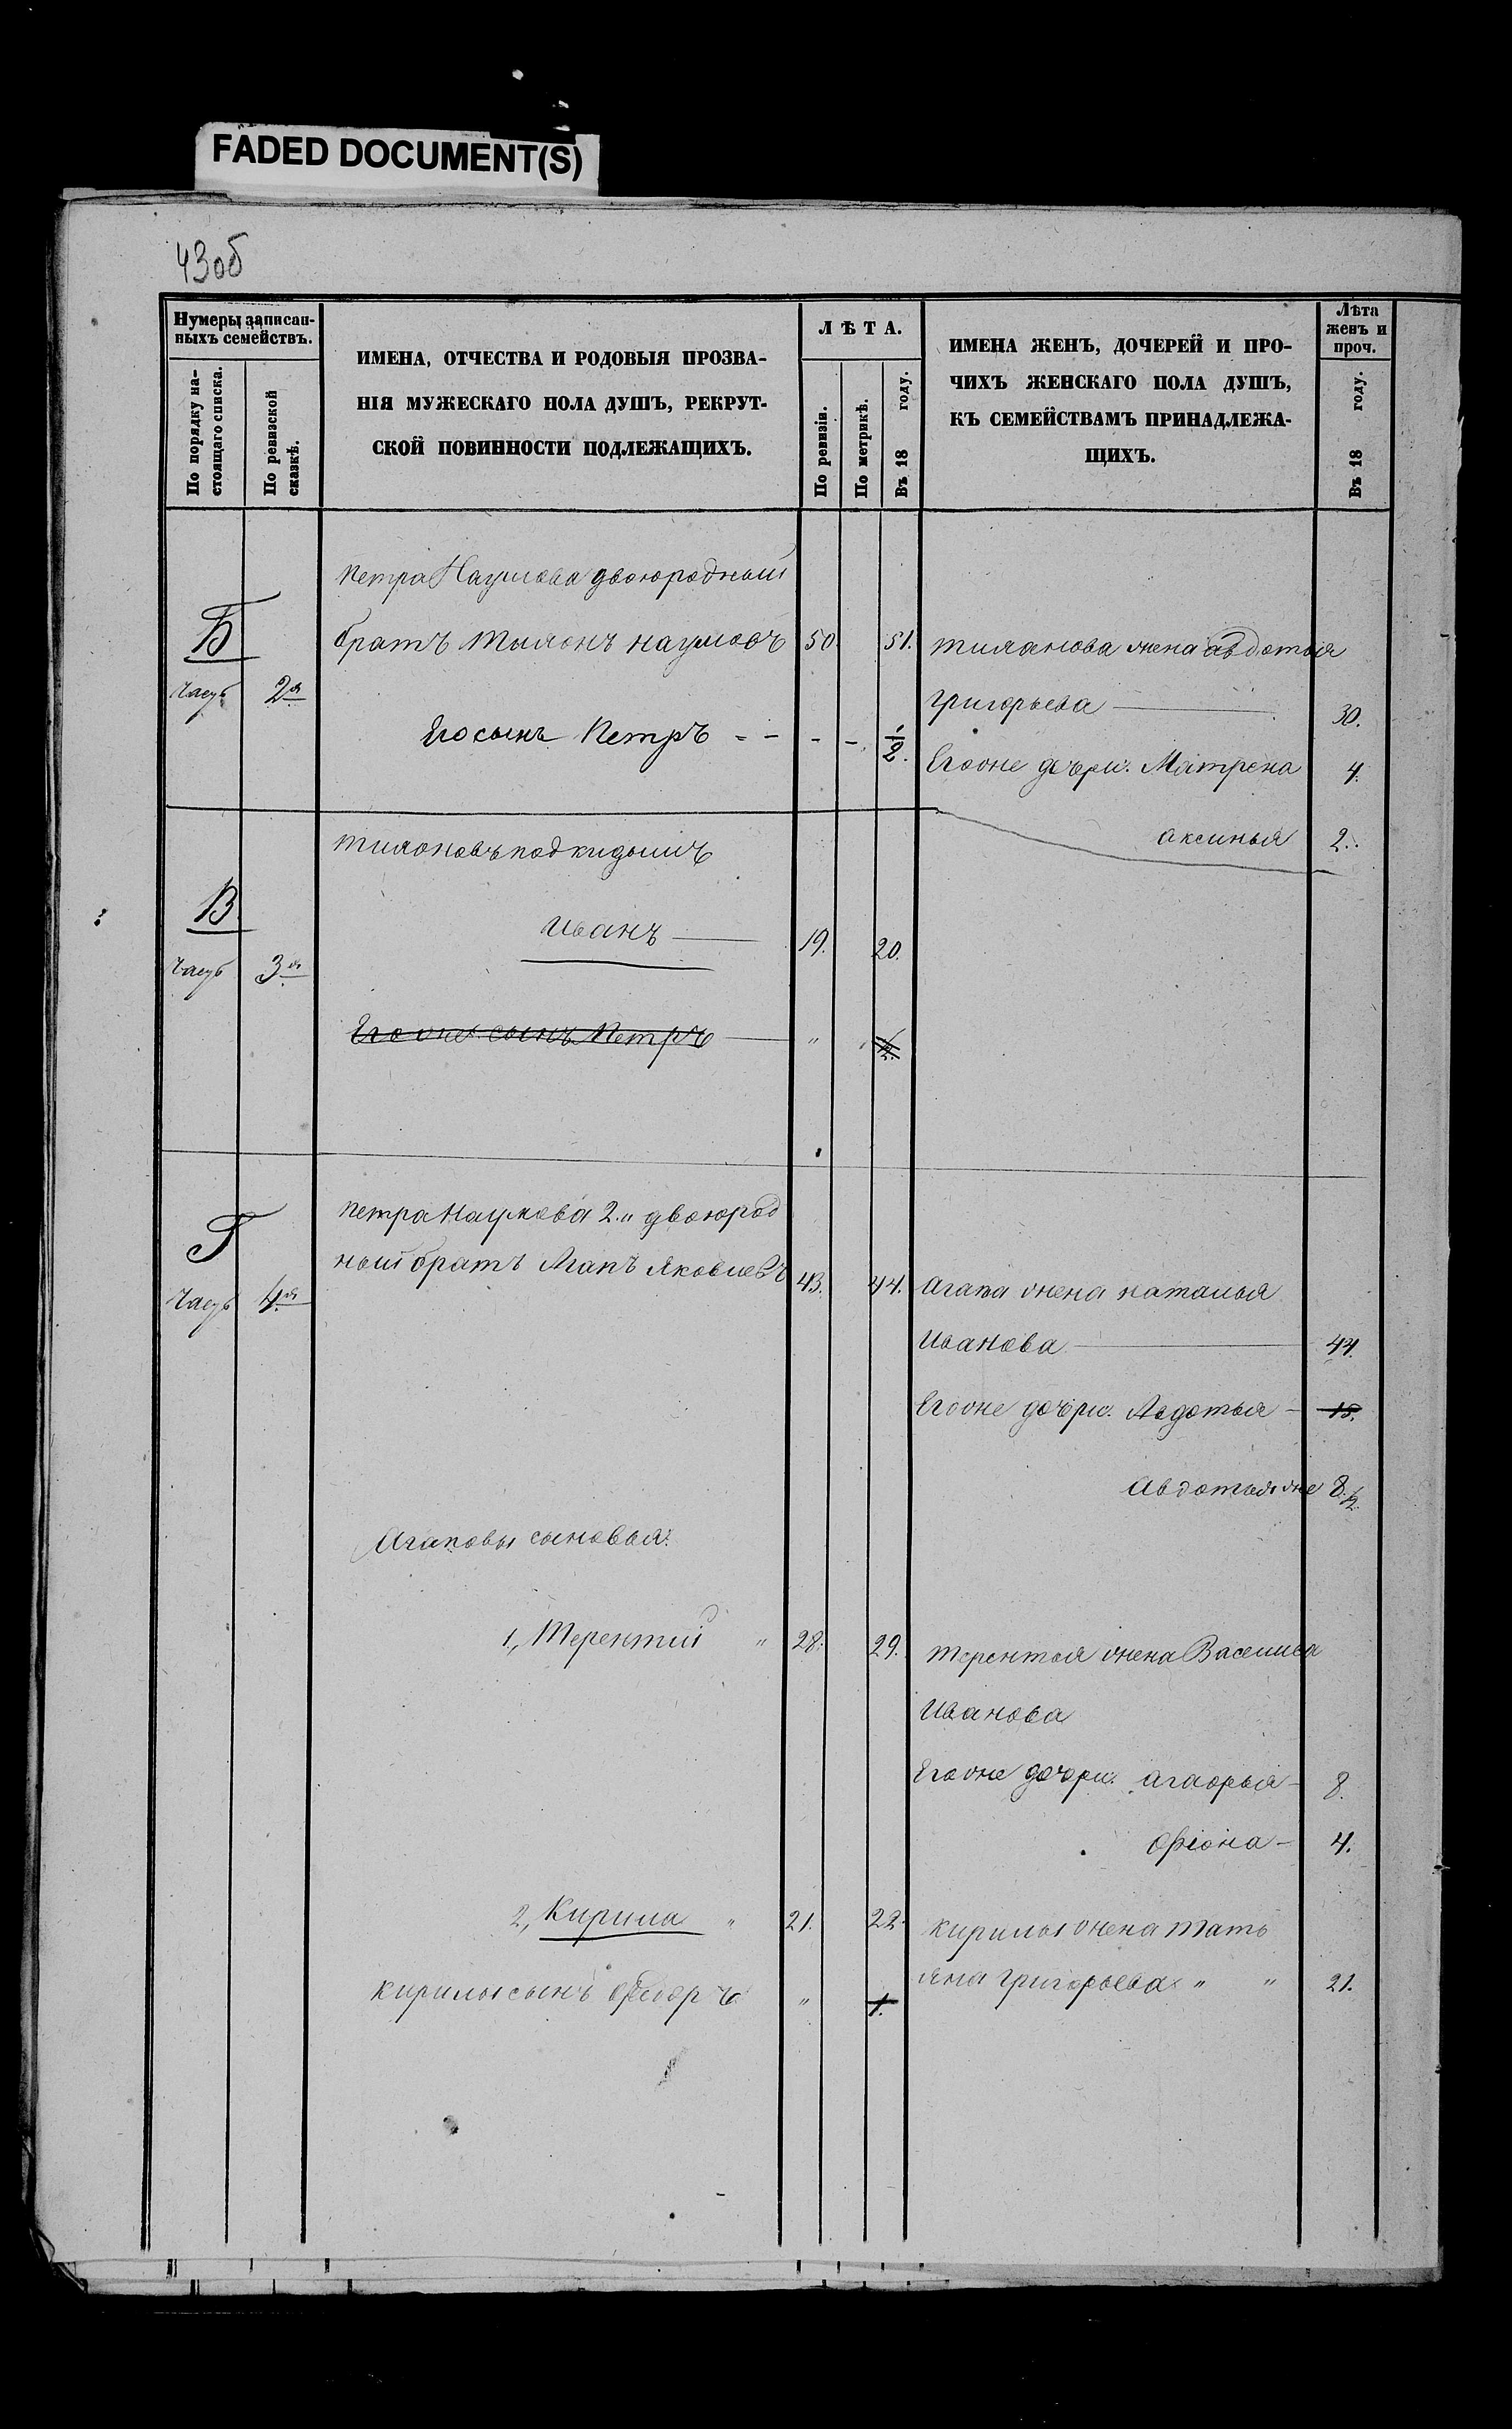 FADED DOCUMENT(S)
43об
Нумеры записан-
ныхъ семействъ.
По порядку на-
стоящаго списка.
По ревизской
сказкѣ.
ИМЕНА, ОТЧЕСТВА И РОДОВЫЯ ПРОЗВА-
НІЯ МУЖЕСКАГО ПОЛА ДУШЪ, РЕКРУТ-
СКОЙ ПОВИННОСТИ ПОДЛЕЖАЩИХЪ.
ЛѢТА.
По ревизіи.
По метрикѣ.
Въ 18 году.
ИМЕНА ЖЕНЪ, ДОЧЕРЕЙ И ПРО-
ЧИХЪ ЖЕНСКАГО ПОЛА ДУШЪ,
КЪ СЕМЕЙСТВАМЪ ПРИНАДЛЕЖА-
ЩИХЪ.
Лѣта
женъ и
проч.
Въ 18 году.
Петра Наумова двоюродный
Б братъ наумовъ 50. 51. жена авдотья
часть 2я Григорьева 30.
Его сынъ Петръ - - - - 1/2.
Его же дочри. Матрена 4.
аксинья 2.
подкидышъ
В
Иванъ 19. 20.
часть 3я
Его же сынъ Петръ " 1/2.
Петра Наумова 2.й двоюрод
Г ный братъ Агапъ Яковлевъ 43. 44. Агапа жена наталья
часть 4я
Иванова 44.
Его же дочри. Авдотья - 15.
Авдотья же 8 1/2.
Агаповы сыновья:
1, Терентий " 28. 29. Терентья жена Василиса
Иванова
Его же дочри. агафья - 8.
Фіона - 4.
2, Кирила " 21. 22. кирилы жена Тать
яна григорьева " " 21.
кирилы сынъ Федоръ " 1.